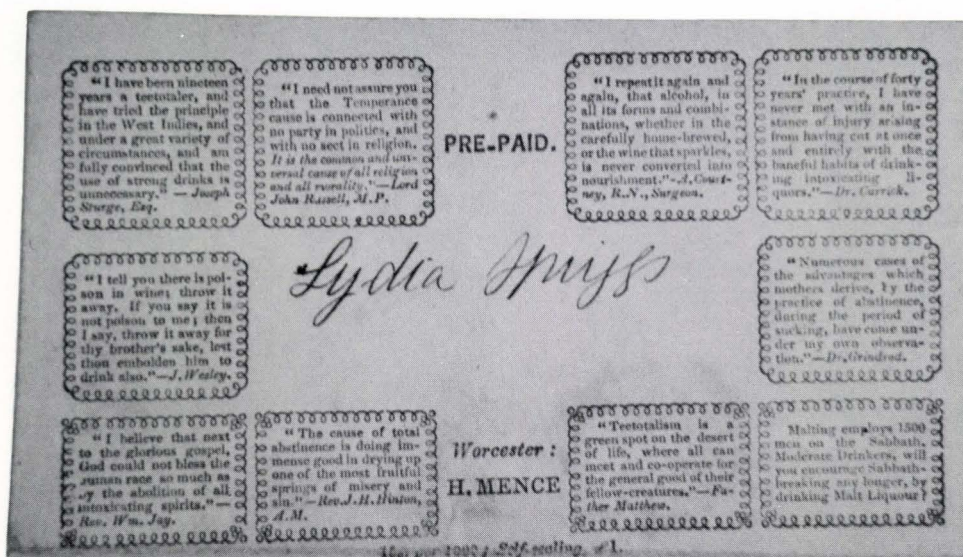 "I have been nineteen
years a teetotaler, and
have tried the principle
in the West Indies, and
under a great variety of
circumstances, and am
fully convinced that the
use of strong drinks is
unnecessary." — Joseph
Sturge, Esq.
"I need not assure you
that the Temperance
cause is connected with
no party in politics, and
with no sect in religion.
It is the common and uni-
versal cause of all religion
and all morality."—Lord
John Russell, M.P.
PRE-PAID.
"I repeat it again and
again, that alcohol, in
all its forms and combi-
nations, whether in the
carefully home-brewed,
or the wine that sparkles,
is never converted into
nourishment."—A. Court-
ney, R.N., Surgeon.
"In the course of forty
years' practice, I have
never met with an in-
stance of injury arising
from having cut at once
and entirely with the
baneful habits of drink-
ing intoxicating li-
quors."—Dr. Carrick.
"I tell you there is poi-
son in wine; throw it
away. If you say it is
not poison to me; then
I say, throw it away for
thy brother's sake, lest
thou embolden him to
drink also."—J. Wesley.
Lydia Spriggs
"Numerous cases of
the advantages which
mothers derive, by the
practice of abstinence,
during the period of
sucking, have come un-
der my own observa-
tion."—Dr. Grindrod.
"I believe that next
to the glorious gospel,
God could not bless the
human race so much as
by the abolition of all
intoxicating spirits."—
Rev. Wm. Jay.
"The cause of total
abstinence is doing im-
mense good in drying up
one of the most fruitful
springs of misery and
sin."—Rev. J. H. Hinton,
A.M.
Worcester:
H. MENCE
"Teetotalism is a
green spot on the desert
of life, where all can
meet and co-operate for
the general good of their
fellow-creatures."—Fa-
ther Matthew.
Malting employs 1300
men on the Sabbath.
Moderate Drinkers, will
you encourage Sabbath-
breaking any longer, by
drinking Malt Liquour?
per 1000; Self-sealing,